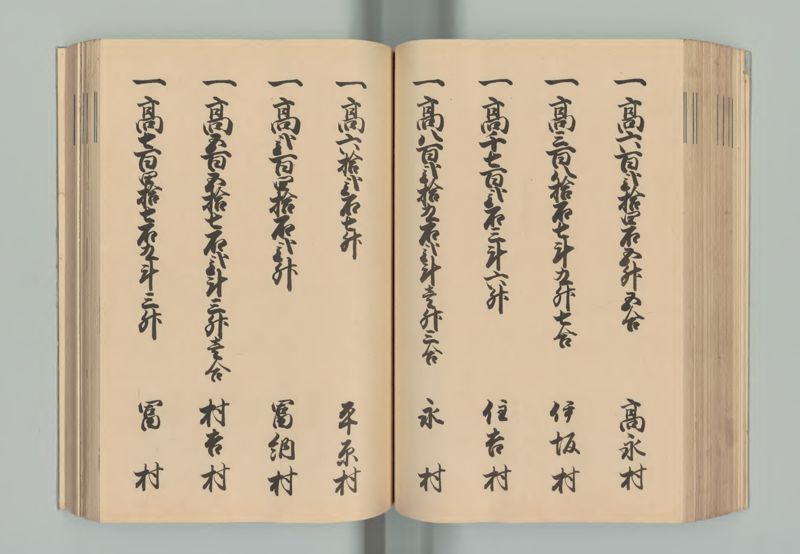 一高六百弐拾四石五升五合 高永村
一高三百八拾石七斗九升七合 伊坂村
一高千七百弐石三斗六升 住吉村
一高八百弐拾九石弐斗壱升三合 永村
一高六拾弐石七升 平原村
一高弐百四拾石弐升 富綱村
一高五百五拾七石弐斗三升壱合 村吉村
一高七百四拾七石九斗三升 富村